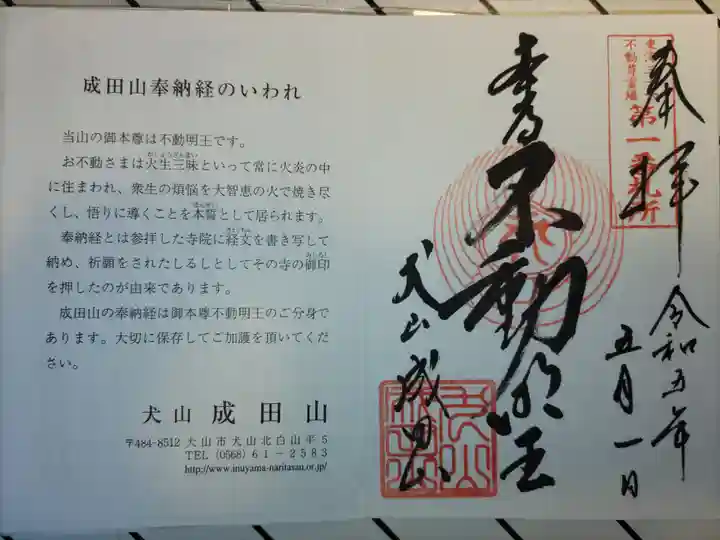 成田山奉納経のいわれ
当山の御本尊は不動明王です。
お不動さまは火生三昧といって常に火炎の中
に住まわれ、衆生の煩悩を大智恵の火で焼き尽
くし、悟りに導くことを本誓として居られます。
奉納経とは参拝した寺院に経文を書き写して
納め、祈願をされたしるしとしてその寺の御印
を押したのが由来であります。
成田山の奉納経は御本尊不動明王のご分身で
あります。大切に保存してご加護を頂いてくだ
さい。
犬山 成田山
〒484-8512 犬山市犬山北白山平5
TEL (0568) 61-2583
http://www.inuyama-naritasan.or.jp/
奉拝
第一番札所
令和五年
五月一日
不動明王
犬山成田山